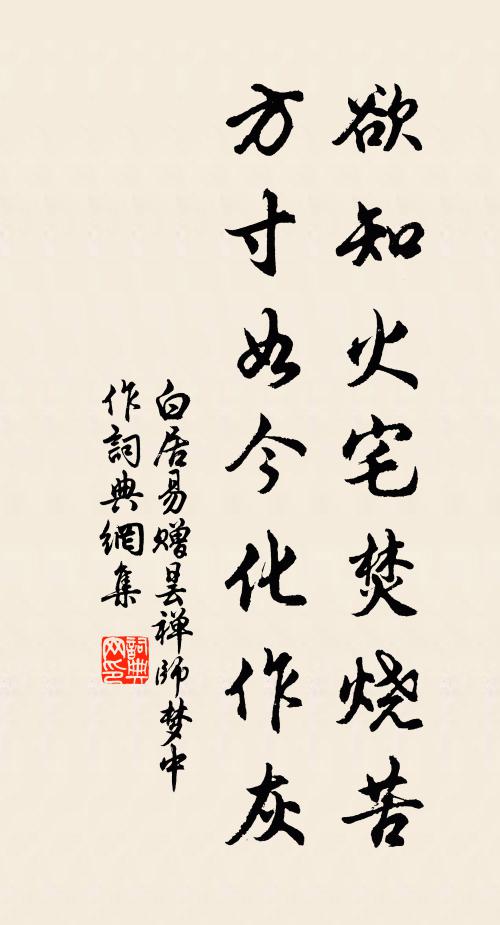 欲知火宅焚烧苦
方寸如今化作灰
白居易赠昙禅师梦中
作詞典網集
詞典
网印